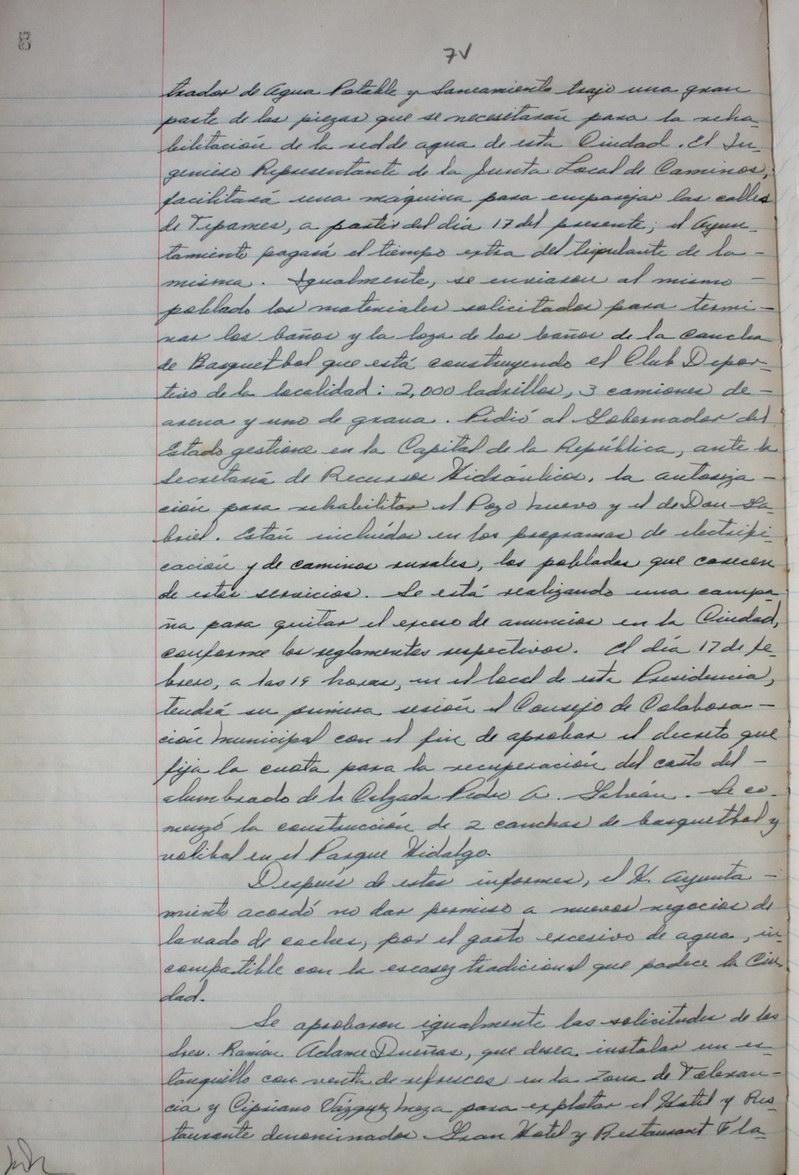 8
7V
trador de Agua Potable y Saneamiento trajo una gran
parte de las piezas que se necesitarán para la reha-
bilitación de la red de agua de esta Ciudad. El In-
geniero Representante de la Junta Local de Caminos,
facilitará una máquina para emparejar las calles
de Tepames, a partir del día 17 del presente; el Ayun-
tamiento pagará el tiempo extra del tripulante de la -
misma. Igualmente, se enviaron al mismo -
poblado los materiales solicitados para termi-
nar los baños y la loza de los baños de la cancha
de Basquetbol que está construyendo el Club Depor-
tivo de la localidad: 2,000 ladrillos, 3 camiones de -
arena y uno de grava. Pidió al Gobernador del
Estado gestione en la Capital de la República, ante la
Secretaría de Recursos Hidráulicos, la autoriza -
ción para rehabilitar el Pozo Nuevo y el de Don Ga-
briel. Están incluídos en los programas de electrifi-
cación y de caminos rurales, los poblados que carecen
de estos servicios. Se está realizando una campa-
ña para quitar el exceso de anuncios en la Ciudad,
conforme los reglamentos respectivos. El día 17 de fe-
brero, a las 19 horas, en el local de esta Presidencia,
tendrá su primera sesión el Consejo de Colabora -
ción Municipal con el fin de aprobar el decreto que
fija la cuota para la recuperación del costo del -
alumbrado de la Calzada Pedro A. Galván. Se co-
menzó la construcción de 2 canchas de basquetbol y
volibol en el Parque Hidalgo.
Después de estos informes, el H. Ayunta -
miento acordó no dar permiso a nuevos negocios de
lavado de coches, por el gasto excesivo de agua, in-
compatible con la escasez tradicional que padece la Ciu-
dad.
Se aprobaron igualmente las solicitudes de los
Sres. Ramón Adame Dueñas, que desea instalar un es-
tanquillo con venta de refrescos en la Zona de Toleran-
cia y Cipriano Vázquez Meza para explotar el Hotel y Res-
taurante denominados Gran Hotel y Restaurant Fla-